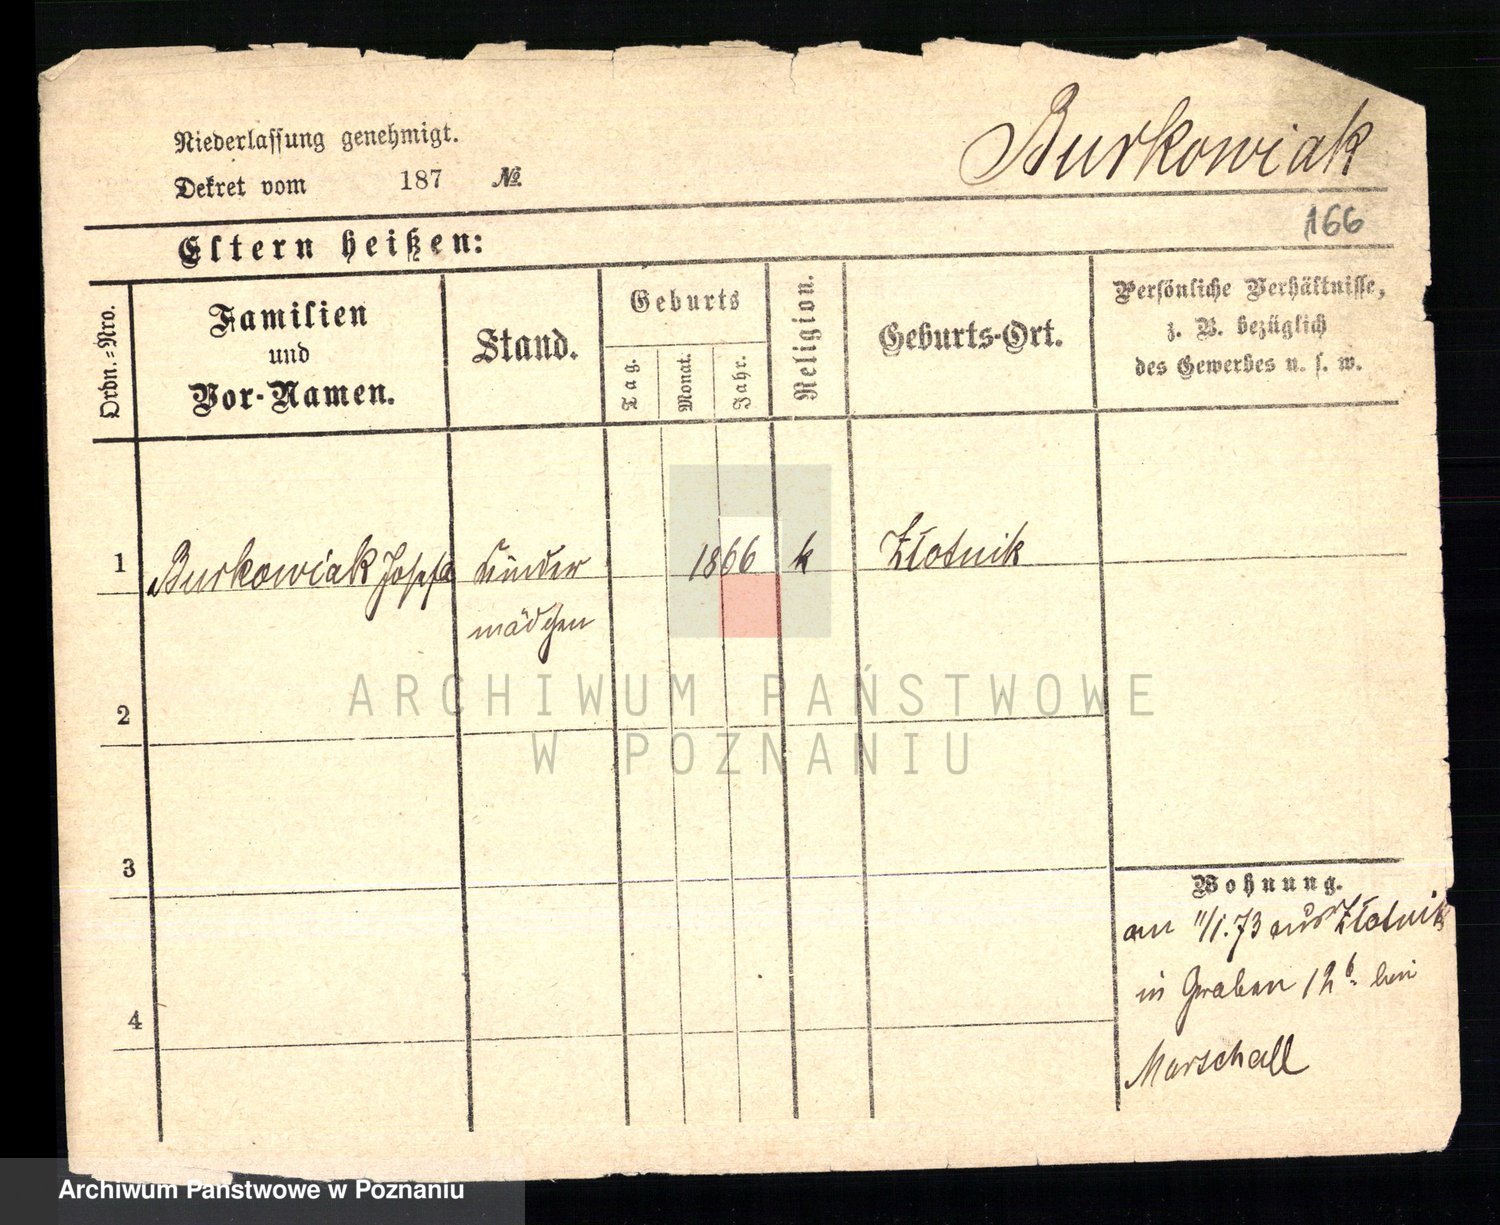 Burkowiak
Niederlassung genehmigt.
Dekret vom 187 No.
166
Eltern heißen:
Ordn.-Nro.
Familien
und
Vor-Namen.
Stand.
Geburts
Tag.
Monat.
Jahr.
Religion.
Geburts-Ort.
Persönliche Verhältnisse,
z. B. bezüglich
des Gewerbes u. s. w.
1 Burkowiak Josefa Kinder 1866 k Złotnik
mädchen
2
3
4
Wohnung.
am 11/1.73 aus Złotnik
in Graben 12b. bei
Marschall
ARCHIWUM PAŃSTWOWE
W POZNANIU
Archiwum Państwowe w Poznaniu